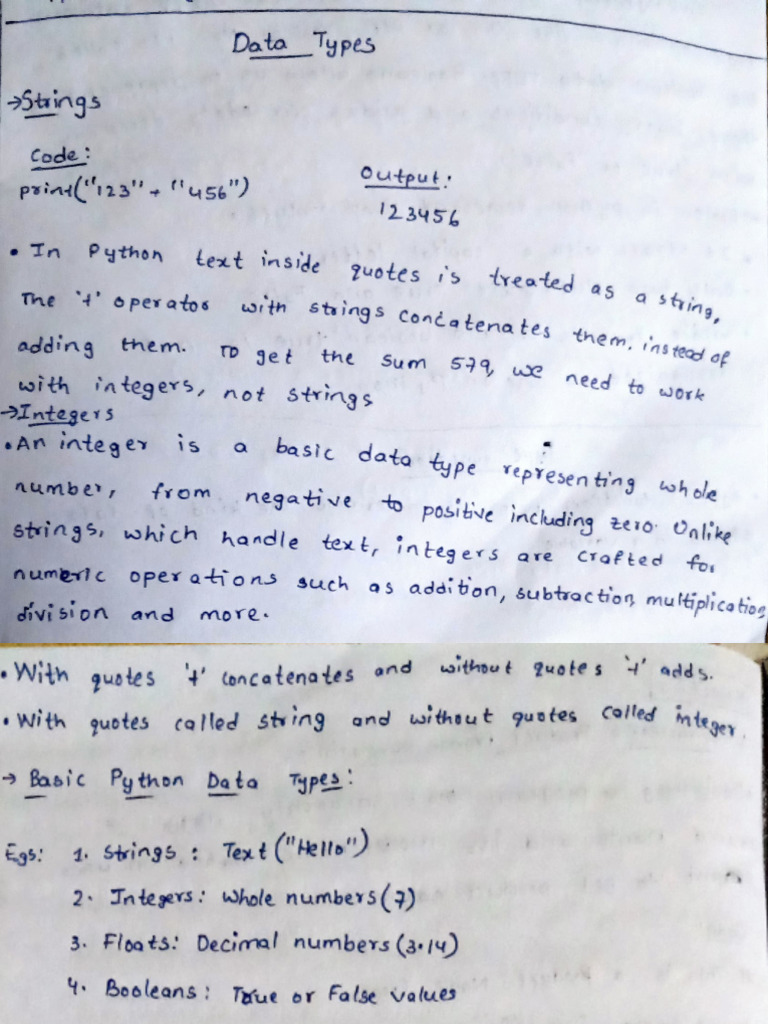 Data Types
→Strings
Code:
print("123" + "456")
Output:
123456
• In Python text inside quotes is treated as a string,
The '+' operator with strings concatenates them, instead of
adding them. To get the sum 579, we need to work
with integers, not strings
→Integers
•An integer is a basic data type representing whole
number, from negative to positive including zero. Unlike
strings, which handle text, integers are crafted for
numeric operations such as addition, subtraction, multiplication,
division and more.
• With quotes '+' concatenates and without quotes '+' adds.
• With quotes called string and without quotes called integer.
→ Basic Python Data Types:
Egs: 1. Strings : Text ("Hello")
2. Integers: Whole numbers(7)
3. Floats: Decimal numbers (3.14)
4. Booleans: True or False values